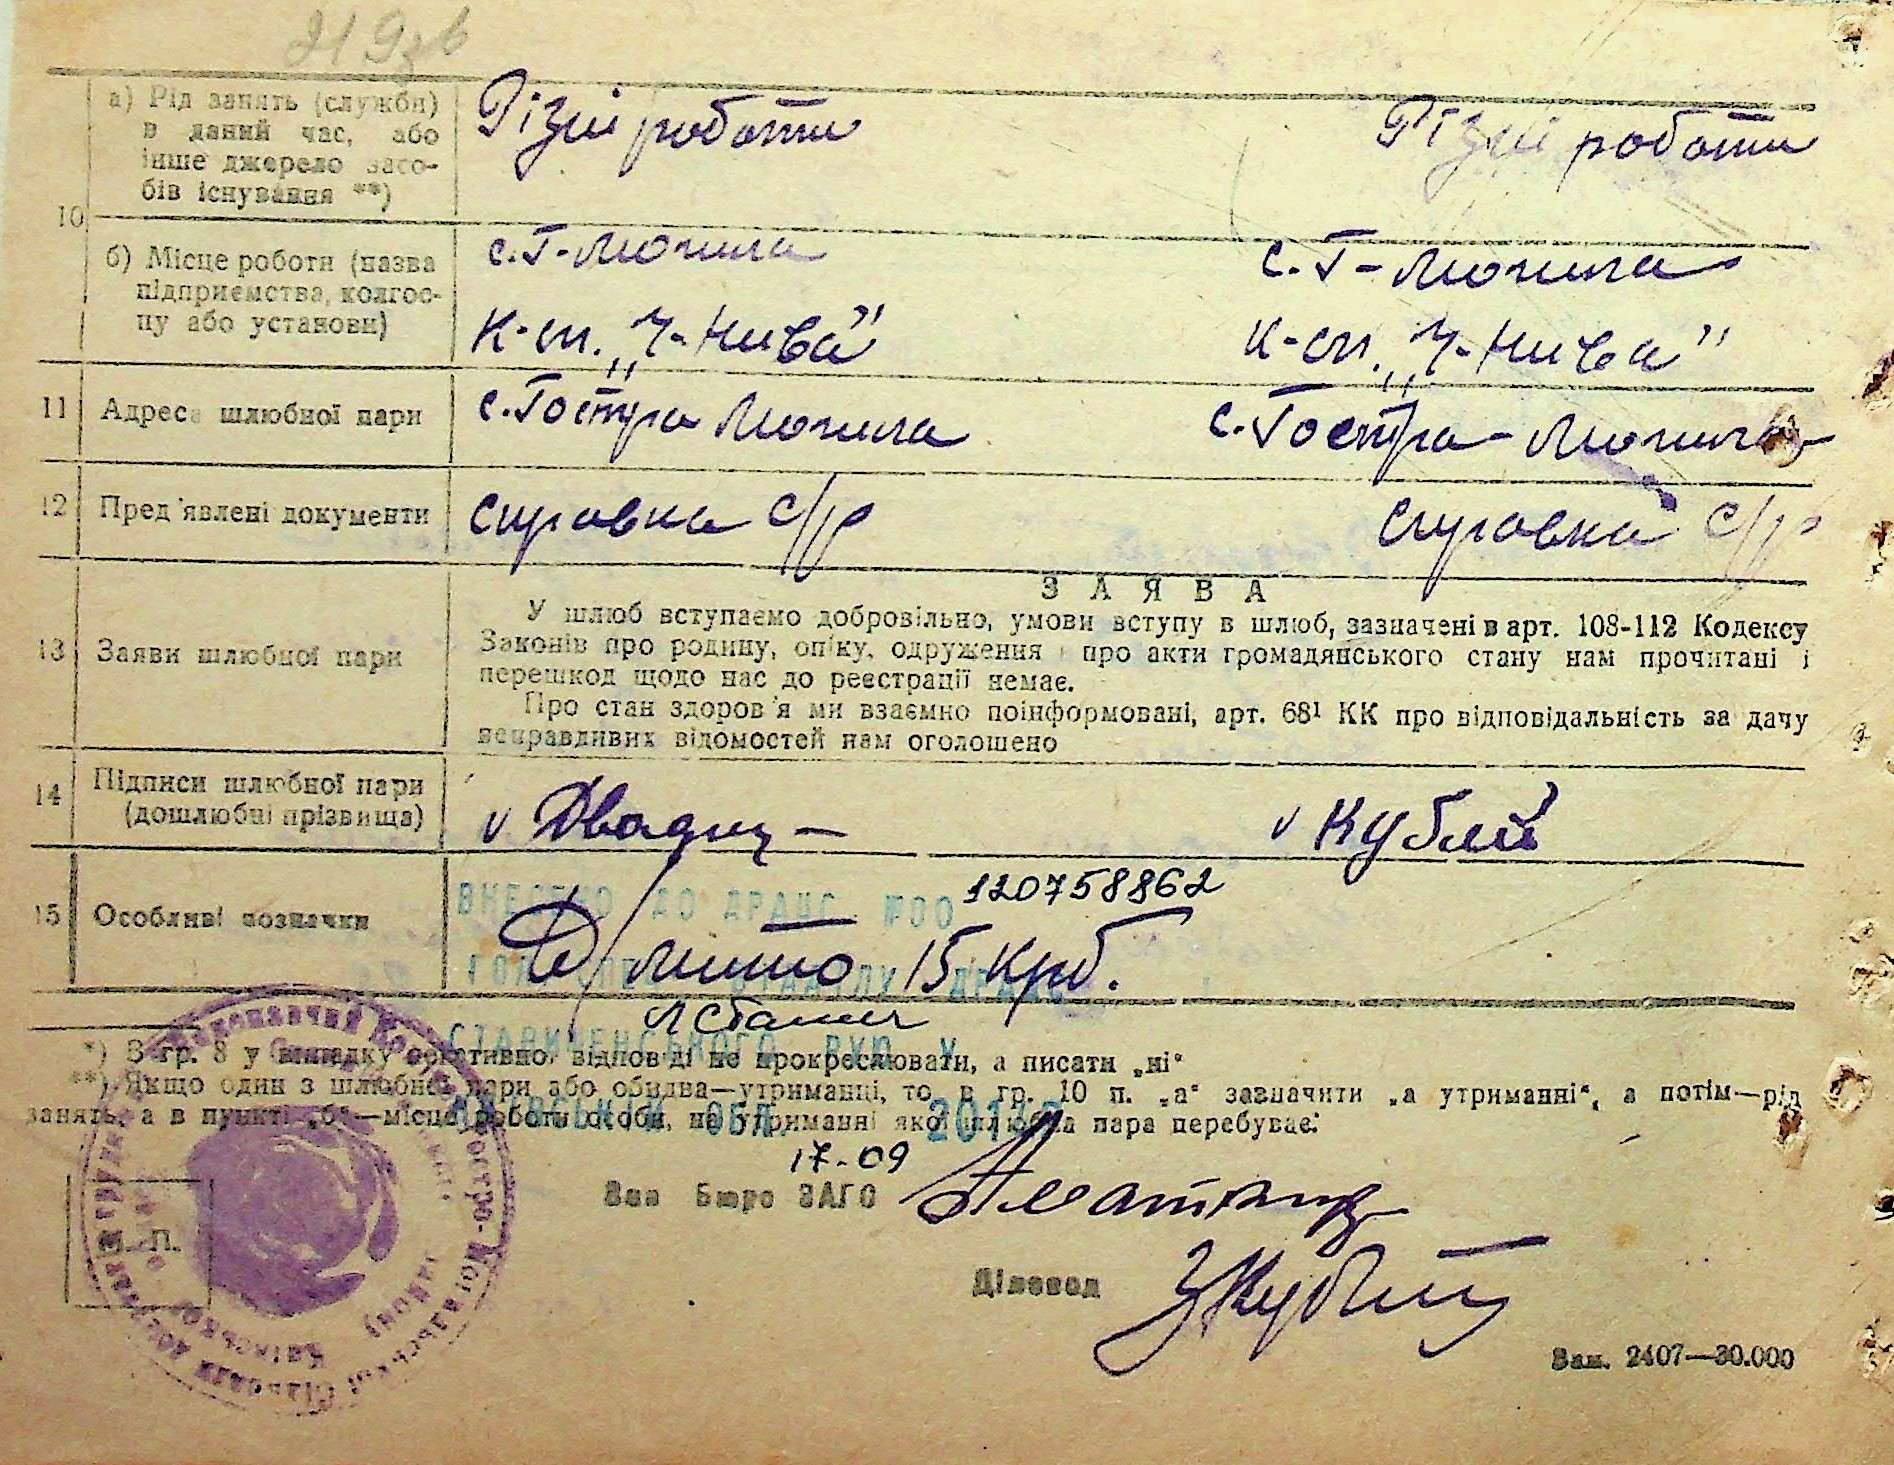 10
а) Рід занять (служби)
в даний час, або
інше джерело засо-
бів існування **)
Різні роботи
Різні роботи
б) Місце роботи (назва
підприємства, колгос-
пу або установи)
с. Г-Могила
с. Г-Могила
к-сп. „Ч-Нива"
к-сп. „Ч-Нива"
11 Адреса шлюбної пари
с. Гостра Могила
с. Гостра-Могила
12 Пред'явлені документи
справка с/р
справка с/р
13 Заяви шлюбної пари
ЗАЯВА
У шлюб вступаємо добровільно, умови вступу в шлюб, зазначені в арт. 108-112 Кодексу
Законів про родину, опіку, одруження і про акти громадянського стану нам прочитані і
перешкод щодо нас до реєстрації немає.
Про стан здоров'я ми взаємно поінформовані, арт. 68¹ КК про відповідальність за дачу
неправдивих відомостей нам оголошено
14 Підписи шлюбної пари
(дошлюбні прізвища)
v Кублій
15 Особливі позначки
ВНЕСЕНО ДО ДРАЦС №00
120758862
мито 15 крб.
СТАВИЩЕНСЬКОГО РУЮ У
*) В гр. 8 у випадку негативної відповіді не прокреслювати, а писати „ні"
**) Якщо один з шлюбної пари або обидва—утриманці, то в гр. 10 п. „а" зазначити „а утриманні", а потім—рід
занять, а в пункті „б"—місце роботи особи, на утриманні якої шлюбна пара перебуває.
ОБЛ. 2011
17-09
Зав Бюро ЗАГС
М. П.
Діловод
Зам. 2407—30.000